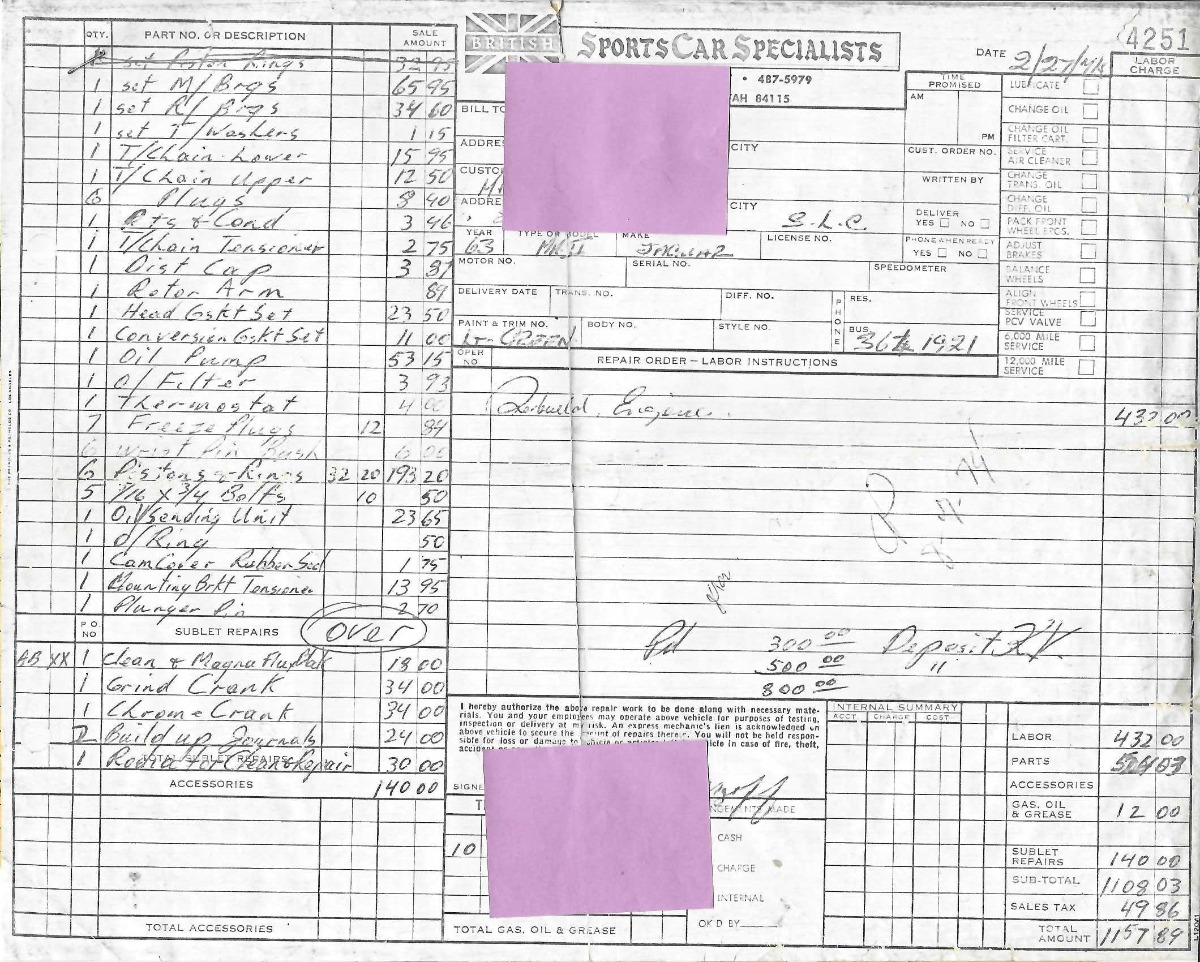 BRITISH SPORTS CAR SPECIALISTS
4251
• 487-5979
AH 84115
DATE 2/27/
LABOR CHARGE
QTY. PART NO. OR DESCRIPTION SALE AMOUNT
set Piston Rings 32 95
1 set M/Brgs 65 95
1 set R/Brgs 34 60
1 set T/Washers 1 15
1 T/Chain Lower 15 95
1 T/Chain Upper 12 50
6 Plugs 8 40
1 Pts & Cond 3 46
1 T/Chain Tensioner 2 75
1 Dist Cap 3 87
1 Rotor Arm 89
1 Head Gskt Set 23 50
1 Conversion Gskt Set 11 00
1 Oil Pump 53 15
1 O/Filter 3 93
1 Thermostat 4 00
7 Freeze Plugs 12 84
6 Wrist Pin Bush 6 00
6 Pistons & Rings 32 20 193 20
5 7/16 x 3/4 Bolts 10 50
1 Oil Sending Unit 23 65
1 O/Ring 50
1 Cam Cover Rubber Seal 1 75
1 Mounting Brkt Tensioner 13 95
1 Plunger Pin 2 70
P.O. NO SUBLET REPAIRS over
AB XX 1 Clean & Magna Flux 18 00
1 Grind Crank 34 00
1 Chrome Crank 34 00
Build up Journals 24 00
1 Radiator Clean & Repair 30 00
TOTAL SUBLET REPAIRS
ACCESSORIES 140 00
TOTAL ACCESSORIES
BILL TO
ADDRES CITY
CUSTO
ADDRE CITY S.L.C.
YEAR 63 TYPE OR MODEL MK II MAKE JAGUAR LICENSE NO.
MOTOR NO. SERIAL NO. SPEEDOMETER
DELIVERY DATE TRANS. NO. DIFF. NO. PHONE RES.
PAINT & TRIM NO. LT-GREEN BODY NO. STYLE NO. BUS. 364 1921
TIME PROMISED
AM
PM
CUST. ORDER NO.
WRITTEN BY
DELIVER
YES NO
PHONE WHEN READY
YES NO
LUBRICATE
CHANGE OIL
CHANGE OIL FILTER CART.
SERVICE AIR CLEANER
CHANGE TRANS. OIL
CHANGE DIFF. OIL
PACK FRONT WHEEL BRGS.
ADJUST BRAKES
BALANCE WHEELS
ALIGN FRONT WHEELS
SERVICE PCV VALVE
6,000 MILE SERVICE
12,000 MILE SERVICE
OPER NO. REPAIR ORDER — LABOR INSTRUCTIONS
Rebuild Engine. 432 00
Pd 300 00 Deposit
500 00 "
800 00
I hereby authorize the above repair work to be done along with necessary mate-
rials. You and your employees may operate above vehicle for purposes of testing,
inspection or delivery at my risk. An express mechanic's lien is acknowledged on
above vehicle to secure the amount of repairs thereto. You will not be held respon-
sible for loss or damage to vehicle or articles left in vehicle in case of fire, theft,
accident
SIGNE
10
CASH
CHARGE
INTERNAL
OK'D BY
TOTAL GAS, OIL & GREASE
INTERNAL SUMMARY
ACCT. CHARGE COST
LABOR 432 00
PARTS 524 03
ACCESSORIES
GAS, OIL & GREASE 12 00
SUBLET REPAIRS 140 00
SUB-TOTAL 1108 03
SALES TAX 49 86
TOTAL AMOUNT 1157 89